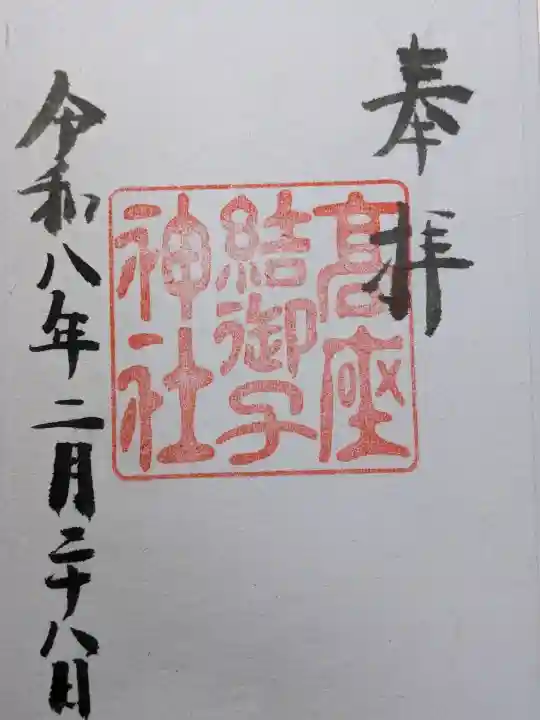 奉拝
髙座
結御子
神社
令和八年二月二十八日